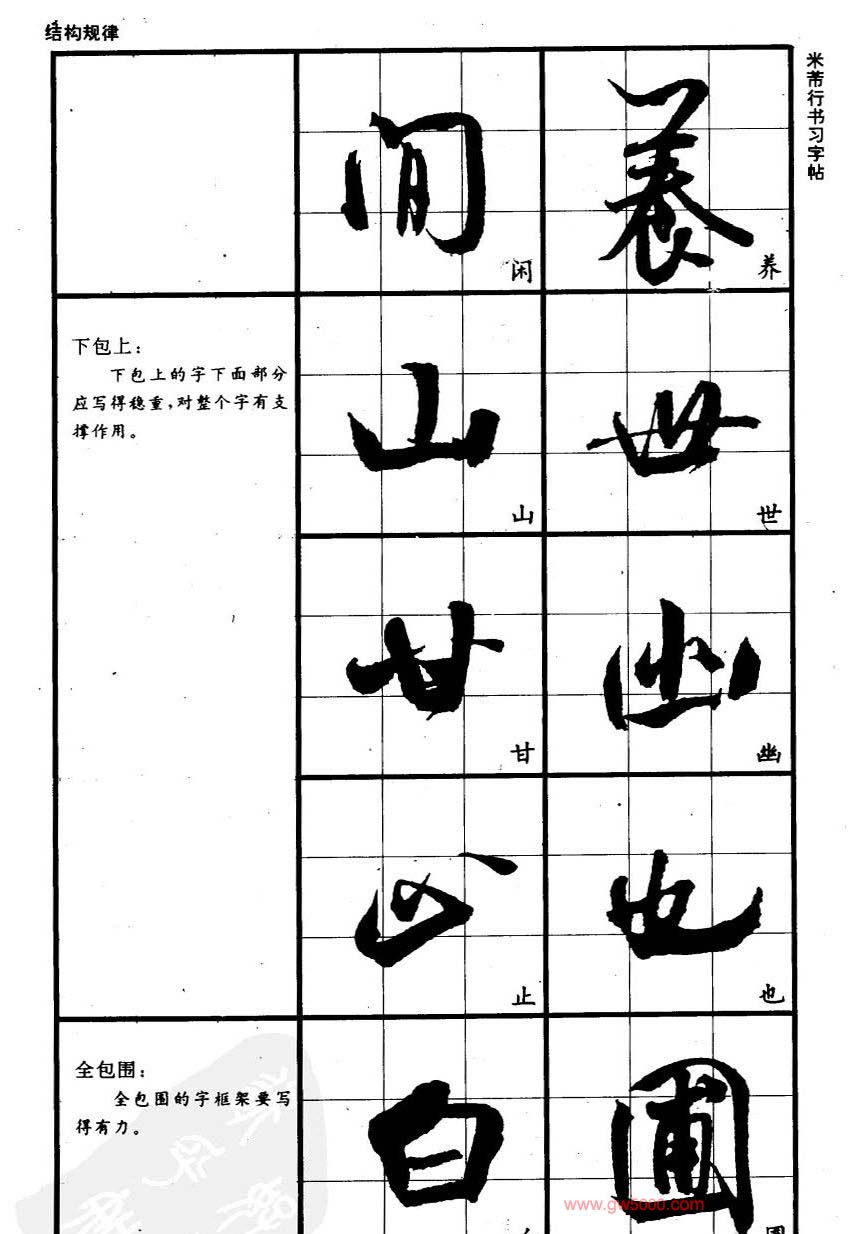 结构规律
米芾行书习字帖
養
养
閒
闲
下包上:
下包上的字下面部分
应写得稳重,对整个字有支
撑作用。
世
世
山
山
幽
幽
甘
甘
也
也
止
止
全包围:
全包围的字框架要写
得有力。
圃
白
www.gw5000.com